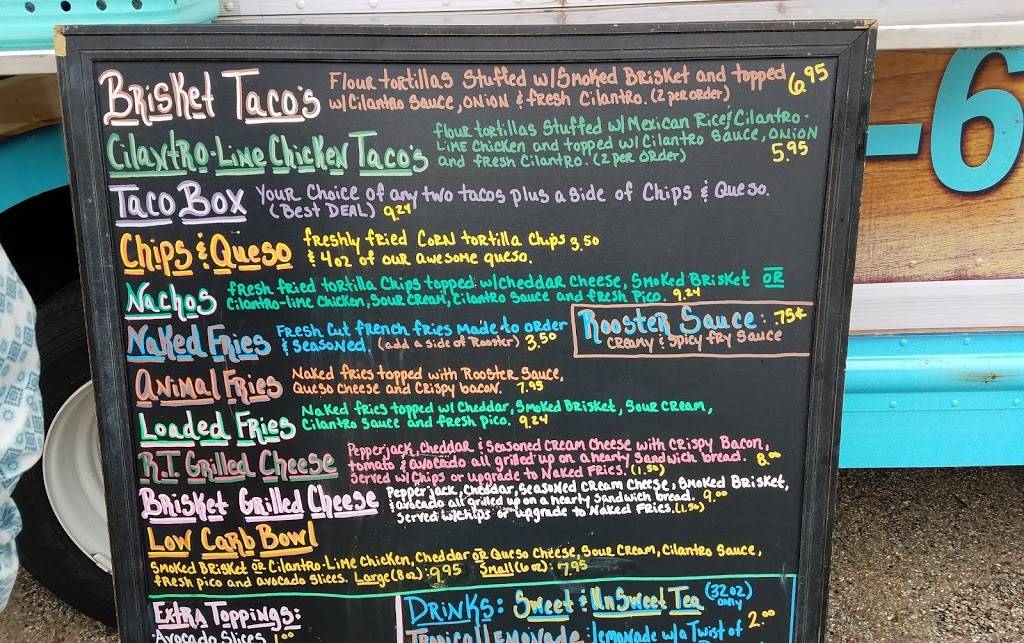 Brisket Taco's
Flour tortillas stuffed w/Smoked Brisket and topped
w/Cilantro Sauce, onion & fresh Cilantro. (2 per order)
6.95
Cilantro-Lime Chicken Taco's
flour tortillas stuffed w/ Mexican Rice, Cilantro-
Lime Chicken and topped w/ Cilantro Sauce, onion
and fresh Cilantro. (2 per order)
5.95
Taco Box
Your choice of any two tacos plus a side of Chips & Queso.
(Best DEAL) 9.24
Chips & Queso
freshly fried Corn tortilla Chips 3.50
& 4oz of our awesome queso.
Nachos
fresh fried tortilla Chips topped w/cheddar Cheese, Smoked Brisket OR
Cilantro-lime Chicken, Sour Cream, Cilantro Sauce and fresh Pico. 9.24
Naked Fries
Fresh Cut french fries made to order
& Seasoned. (add a side of Rooster) 3.50
Rooster Sauce: 75¢
Creamy & Spicy fry Sauce
Animal Fries
Naked fries topped with Rooster Sauce,
Queso Cheese and Crispy bacon. 7.95
Loaded Fries
Naked fries topped w/ Cheddar, Smoked Brisket, Sour Cream,
Cilantro Sauce and fresh Pico. 9.24
R.T. Grilled Cheese
Pepperjack, Cheddar & Seasoned Cream Cheese with Crispy Bacon,
tomato & avocado all grilled up on a hearty Sandwich bread. 8.00
Served w/Chips or upgrade to Naked Fries. (1.50)
Brisket Grilled Cheese
Pepper jack, Cheddar, Seasoned Cream Cheese, Smoked Brisket,
& avocado all grilled up on a hearty Sandwich bread. 9.00
Served w/Chips or upgrade to Naked Fries. (1.50)
Low Carb Bowl
Smoked Brisket OR Cilantro-Lime Chicken, Cheddar OR Queso Cheese, Sour Cream, Cilantro Sauce,
fresh pico and avocado slices. Large (8oz): 9.95 Small (6oz): 7.95
Extra Toppings:
Avocado Slices 1.00
DRINKS: Sweet & UnSweet Tea (32oz) only
2.00
Tropical Lemonade: lemonade w/a Twist of
-6